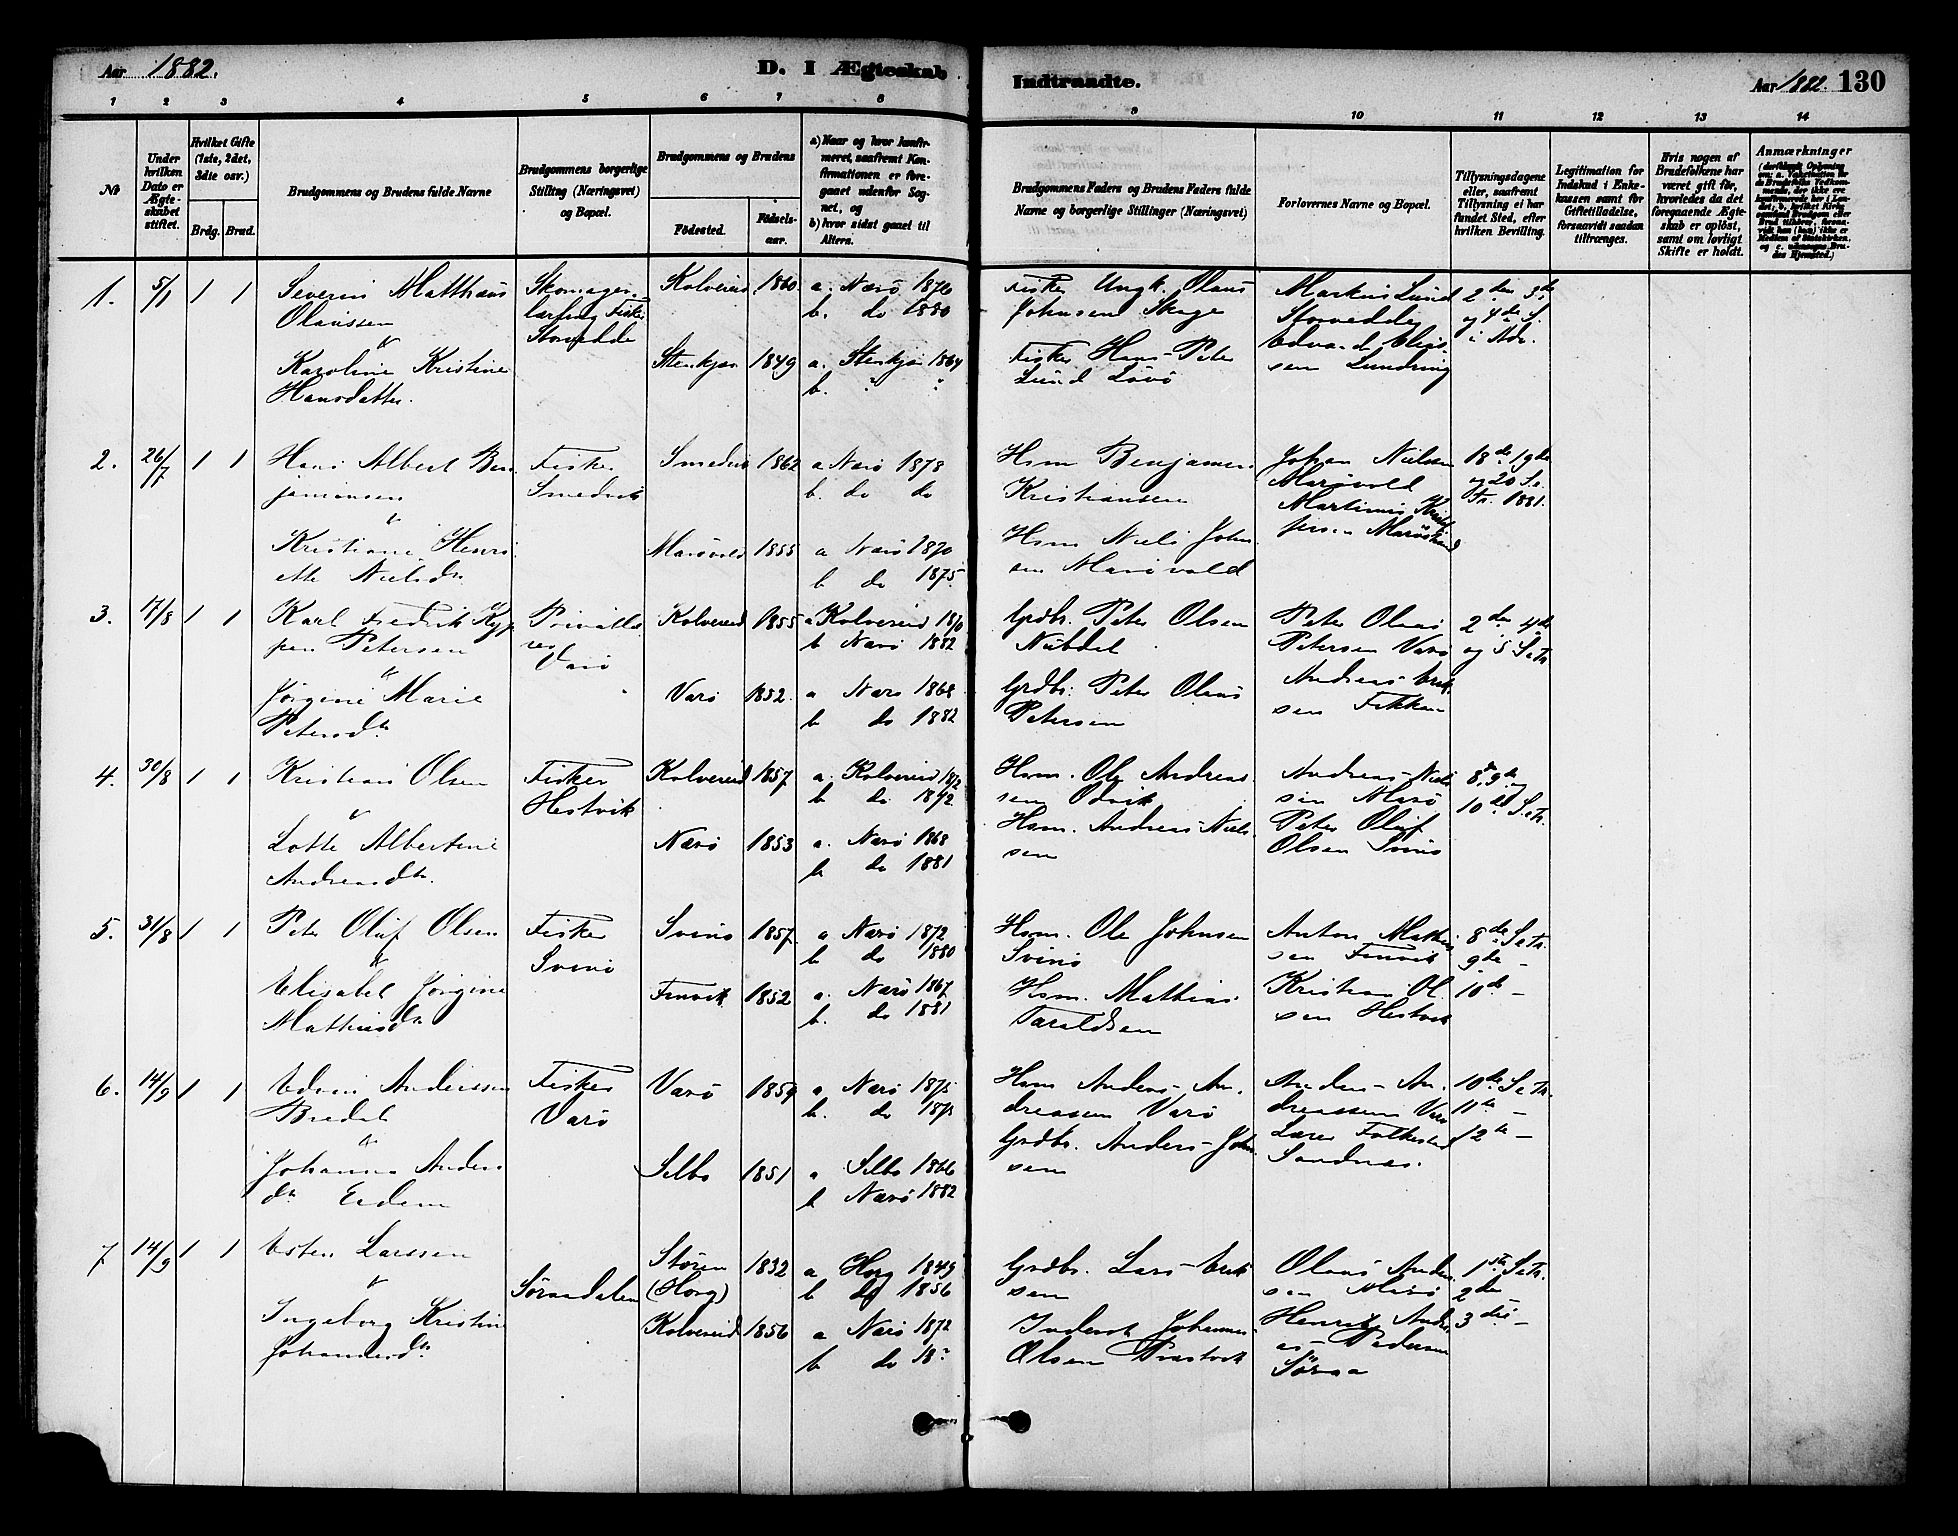 Aar 1882.
D. I Ægteskab
Indtraadte.
Aar 1882. 130
1 2 3 4 5 6 7 8 9 10 11 12 13 14
№
Under hvilken Dato er Ægteskabet stiftet.
Hvilket Gifte (1ste, 2det, 3die osv.)
Brdg. Brud.
Brudgommens og Brudens fulde Navne
Brudgommens borgerlige Stilling (Næringsvei) og Bopæl.
Brudgommens og Brudens
Fødested.
Fødselsaar.
a) Naar og hvor konfirmeret, saafremt Konfirmationen er foregaaet udenfor Sognet, og
b) hvor sidst gaaet til Alters.
Brudgommens Faders og Brudens Faders fulde Navne og borgerlige Stillinger (Næringsvei)
Forlovernes Navne og Bopæl.
Tillysningsdagene eller, saafremt Tillysning ei har fundet Sted, efter hvilken Bevilling.
Legitimation for Indskud i Enkekassen samt for Giftetilladelse, forsaavidt saadan tiltrænges.
Hvis nogen af Brudefolkene har været gift før, hvorledes da det foregaaende Ægteskab er opløst, samt om lovligt Skifte er holdt.
Anmærkninger
1. 5/1 1 1
Severin Matthæus
Olaissen
&
Karoline Kristine
Hansdatter.
Skomager
Storvedde
Kolvereid 1860
a. Nærø 1876
b. do 1880
Stenkjær 1849
a. Stenkjær 1864
b. " "
Fisker Ungk. Olaus
Johnsen Skage
Fisker Hans Peter
Lund Løvø
Markus Lund
Storvedde
Edvard Eliassen Lundring
2den 3de
og 4de S.
i Adv.
2. 26/7 1 1
Hans Albert Benjaminsen
&
Kristiane Henriette Nielsdtr
Fisker
Smedvik
Smedvik 1862
a Nærø 1878
b. do do
Marøvold 1855
a Nærø 1870
b do 1875
Hsm Benjamin
Kristiansen
Hsm Niels Johnsen Marøvold
Johan Nielsen
Marøvold
18de 19de
og 20 S. e.
Tr. 1881.
3. 17/8 1 1
Karl Fredrik Kyp
pen Petersen
&
Jørgine Marie
Petersdtr
Varø
Kolvereid 1855
a Kolvereid 1870
b Nærø 1882
Varø 1852
a Nærø 1868
b do 1882
Grdbr. Peter Olsen
Nubdal
Grdbr. Peter Olaus
Petersen
Peter Olaus
Petersen Varø
Andreas Eriksen
2den 4de
og 5 S.e.Tr.
4. 30/8 1 1
Kristian Olsen
&
Lotte Albertine
Andreasdtr.
Fisker
Hestvik
Kolvereid 1857
a. Kolvereid 1872
b do 1872
Nærø 1853
a. Nærø 1868
b do 1881
Hsm. Ole Andreassen Odvik
Hsm. Andreas Nielsen
Andreas Nielsen Marø
Peter Oluf
Olsen Svinø
8de 9de og
10de S.e.Tr.
5. 31/8 1 1
Peter Oluf Olsen
&
Elisabet Jørgine
Mathiasdtr
Fisker
Svinø
Svinø 1857
a Nærø 1872
b do 1880
Finvik 1852
a. Nærø 1867
b. do 1881
Hsm. Ole Johnsen
Svinø
Hsm. Mathias
Taraldsen
Anton Mathiassen Finvik
Kristian Olsen Hestvik
8de S.e.Tr.
9de –
10de –
6. 14/9 1 1
Edvin Anderssen
Bredal
&
Johanna Andersdtr Eidem
Fisker
Varø
Varø 1859
a Nærø 1875
b. do 1875
Selbo 1851
a Selbo 1866
b Nærø 1882
Hsm Anders Andreassen Varø
Grdbr. Anders Johnsen
Anders Andreassen Varø
Lærer Folkestad
Sandnæs.
10de S.e.Tr.
11te –
12te –
7 14/9 1 1
Esten Larssen
&
Ingeborg Kristine
Johannesdtr
Søraadalen
Støren
(Horg)
1832
a Horg 1849
b do 1856
Kolvereid 1856
a Nærø 1872
b do 18"
Grdbr. Lars Eriksen
Inderst Johannes
Olsen Præstvik
Olaus Andersen Marø
Henrik Andreas Pedersen
Søraa
1ste S.e.Tr.
2den
3die –